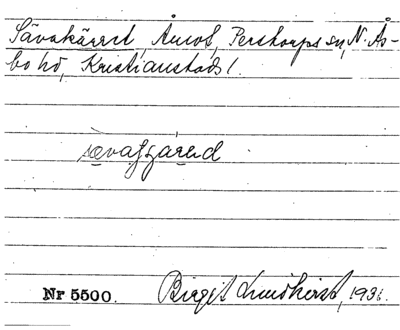 Sävakärret, Åmot, Perstorps sn, N. Ås-
bo hd, Kristianstads l.
Nr 5500. Birgit Lundkvist, 193